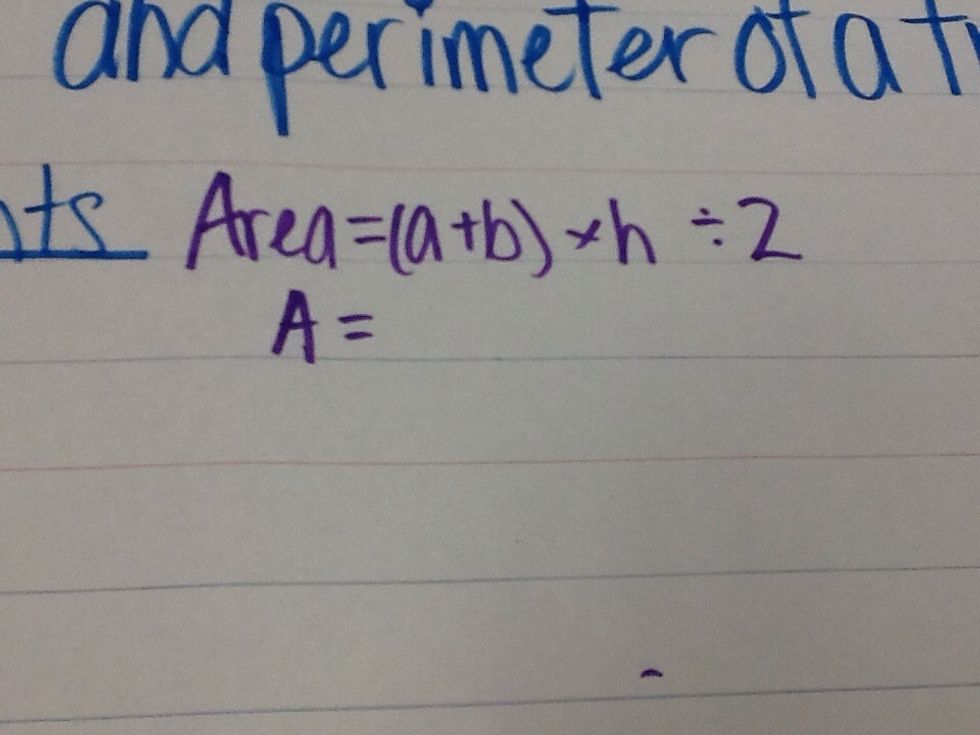 and perimeter of a
Area=(a+b)×h ÷2
A =